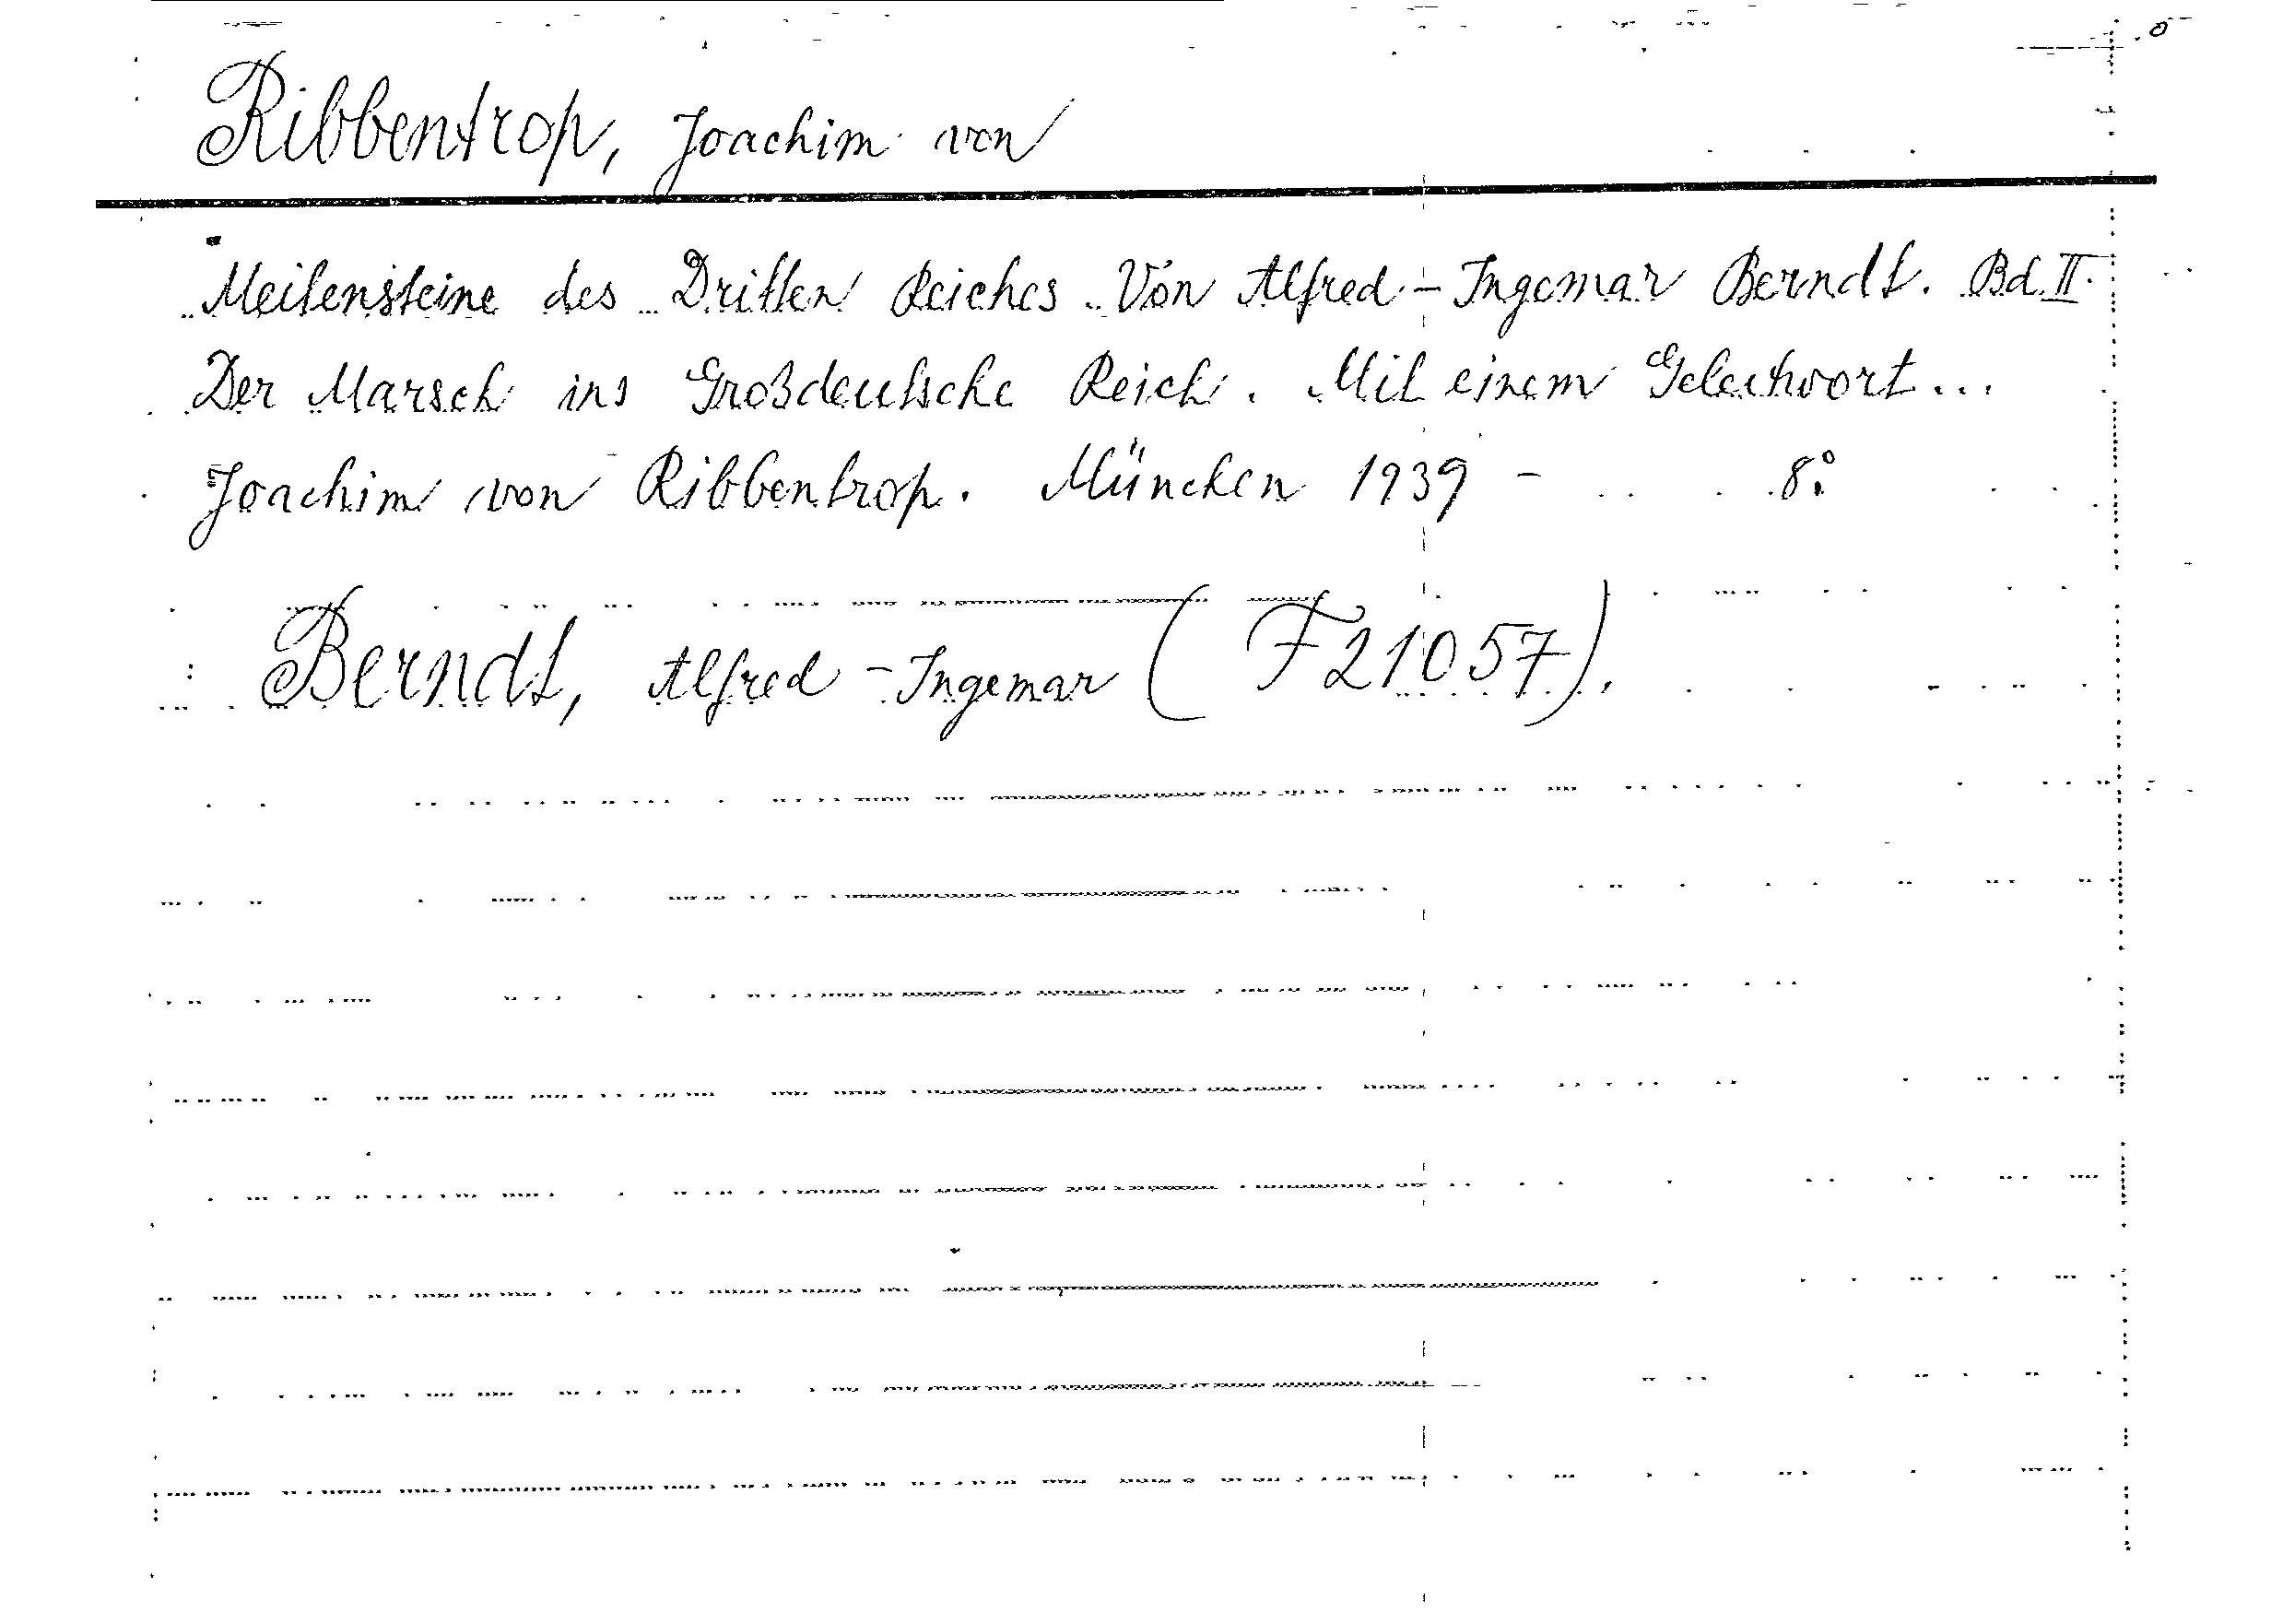 Ribbentrop, Joachim von
Meilensteine des Dritten Reiches. Von Alfred-Ingemar Berndt. Bd. II.
Der Marsch ins Großdeutsche Reich. Mit einem Geleitwort...
Joachim von Ribbentrop. München 1939 - 8°
Berndt, Alfred-Ingemar (F21057).